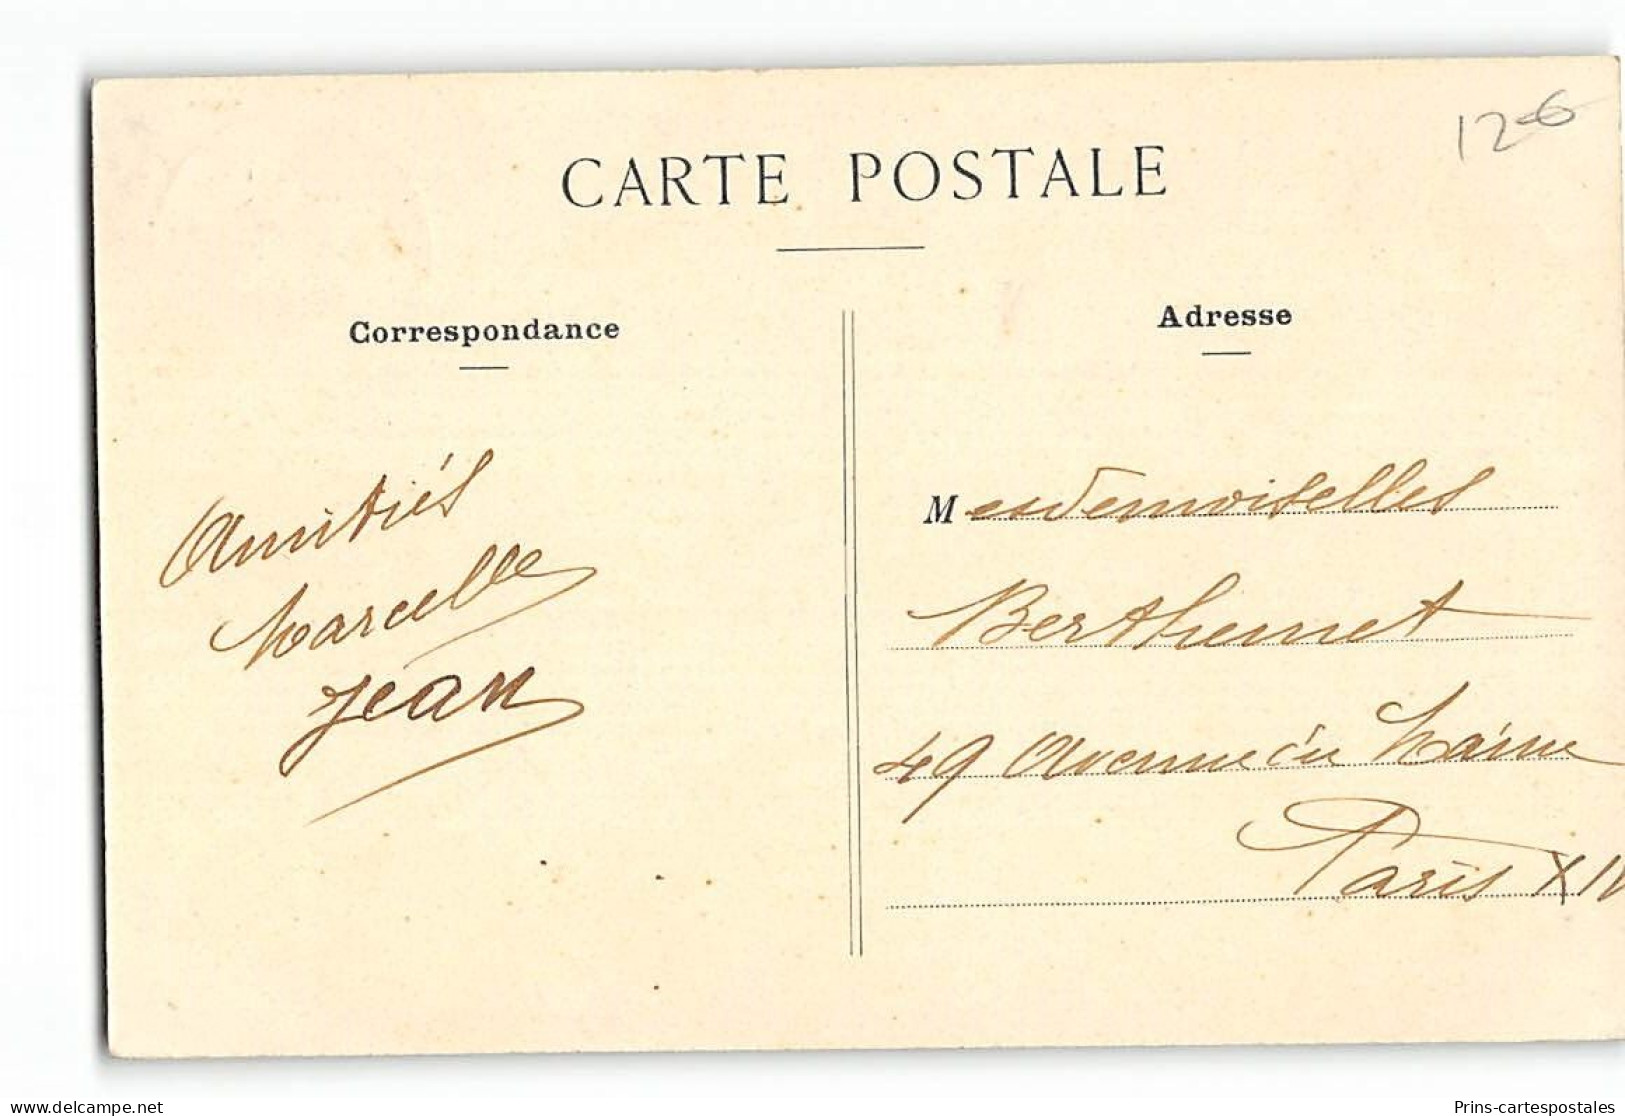 12-6
CARTE POSTALE
Correspondance
Adresse
Amitiés
Marcelle
Jean
Mesdemoiselles
Berthemet
49 Avenue du Maine
Paris XIV
delcampe.net
Prins-cartespostales